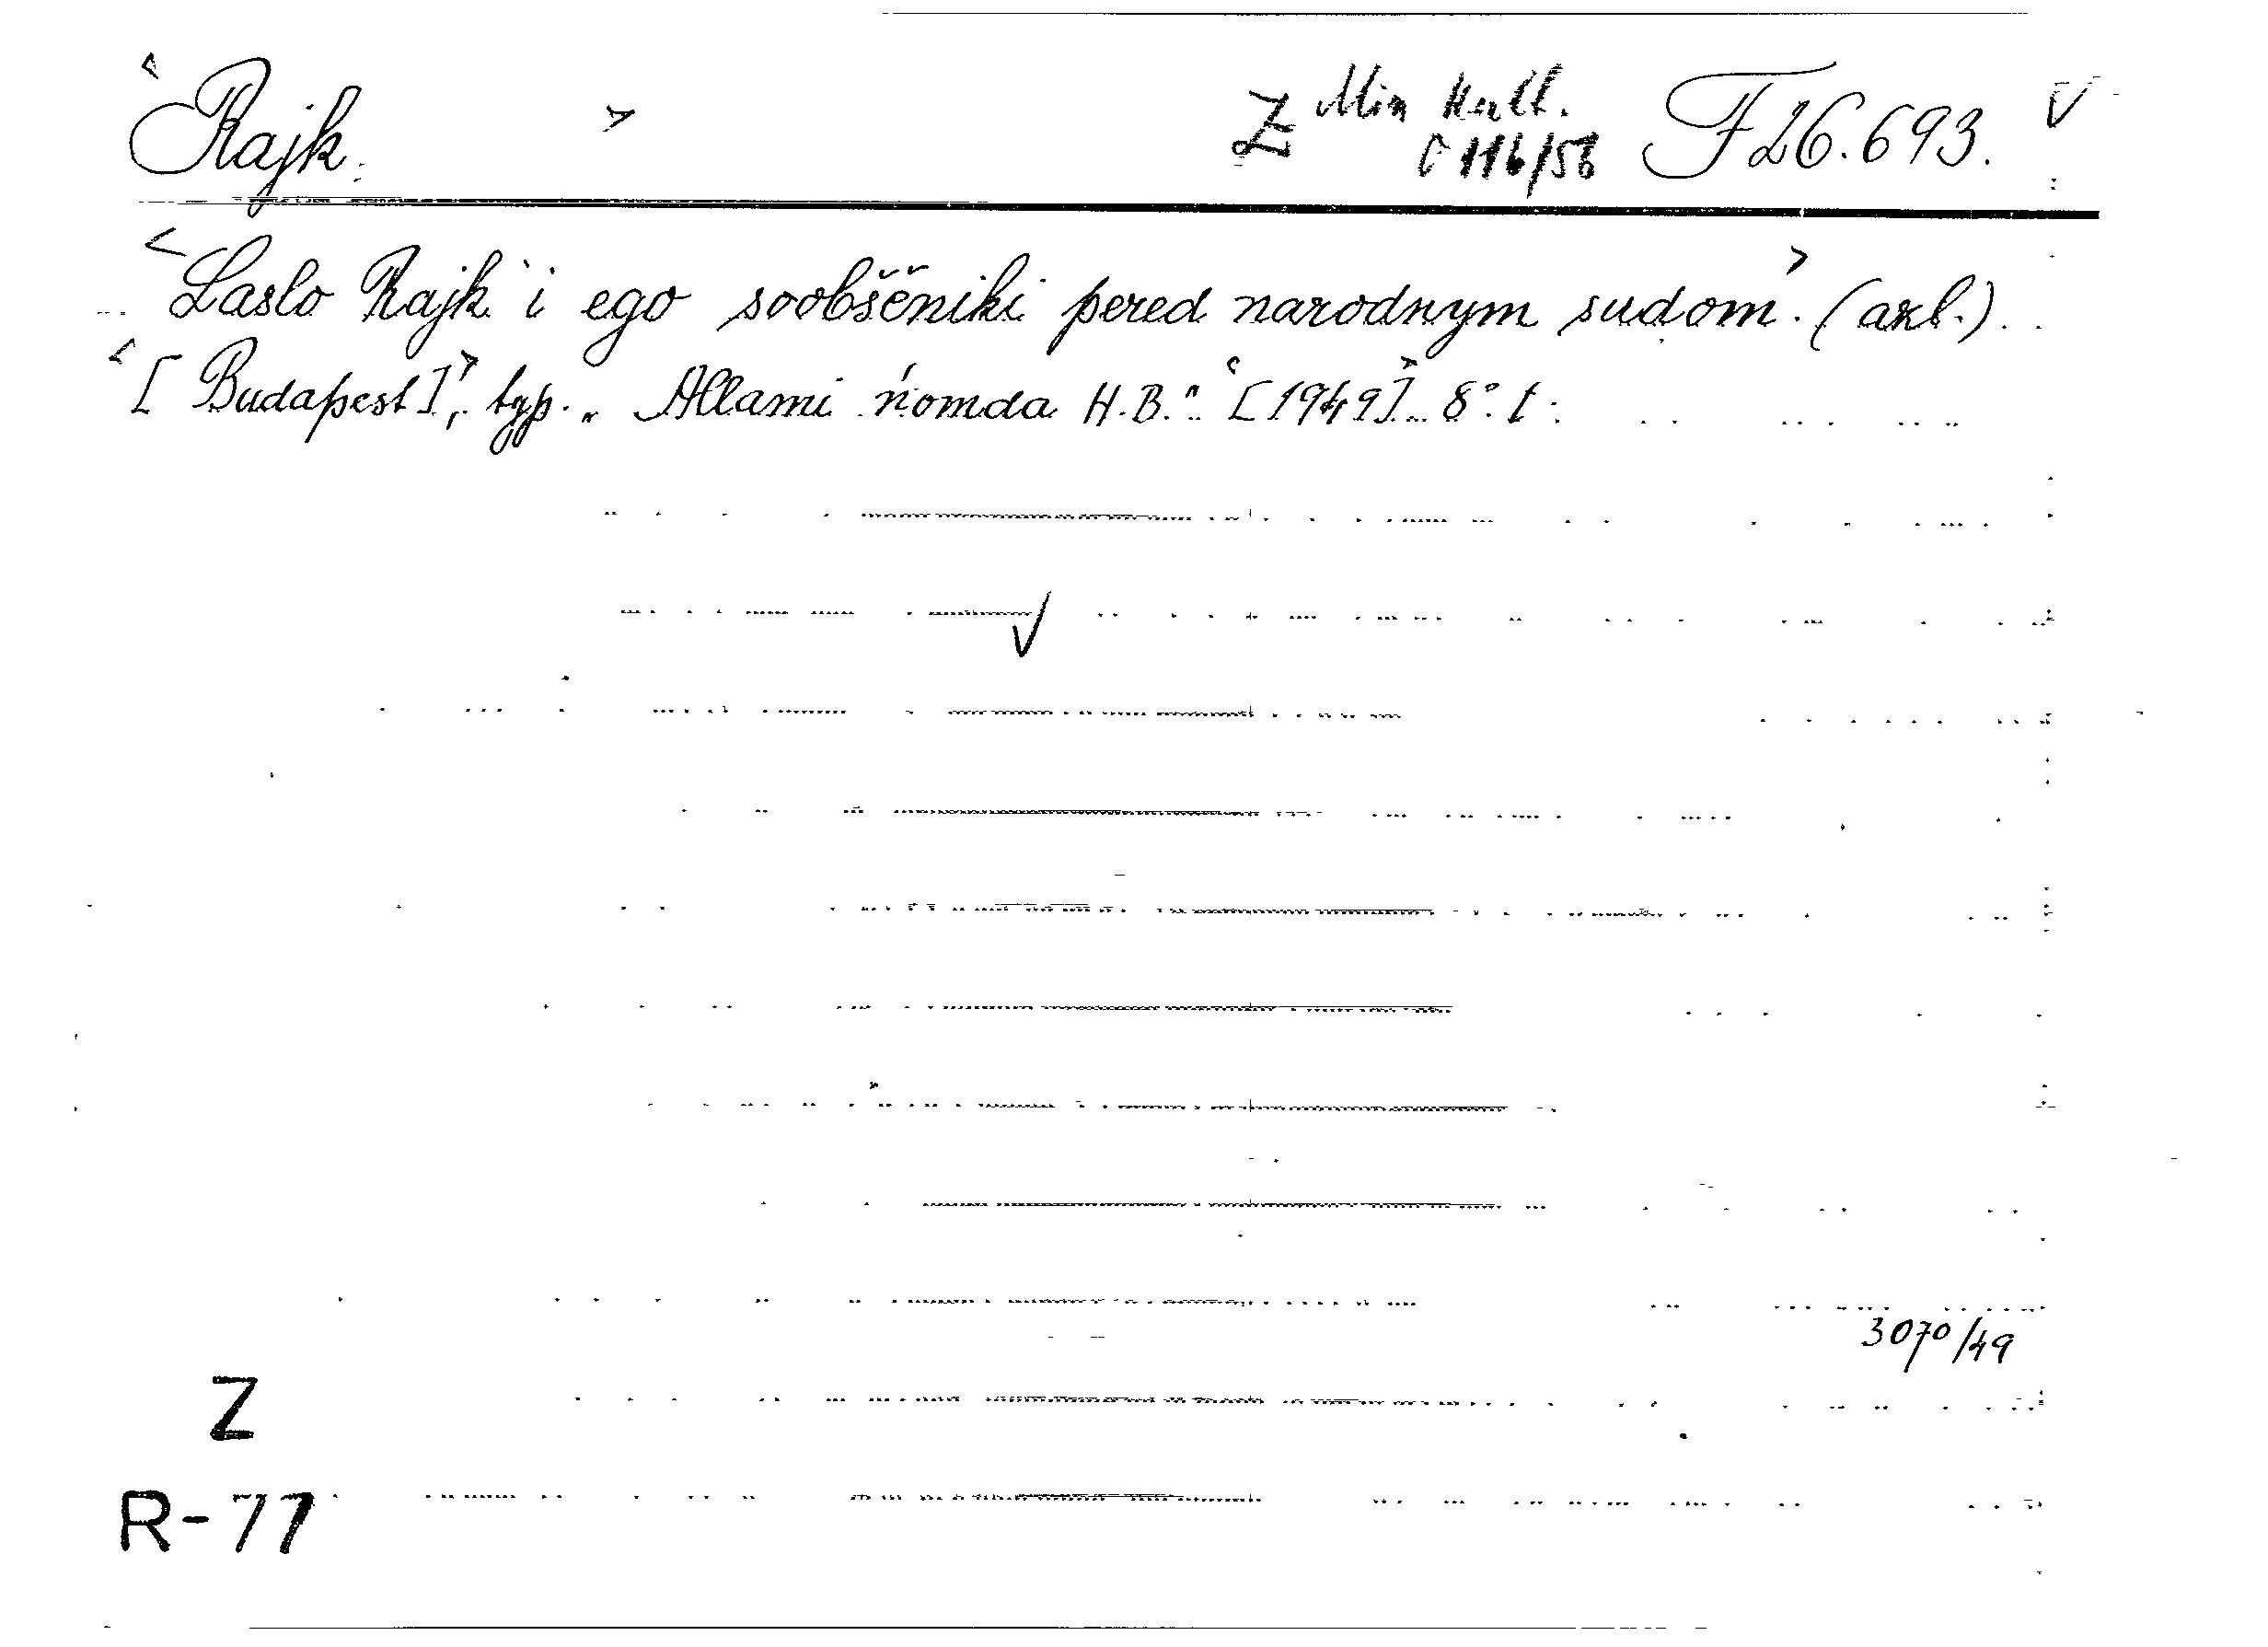 <Rajk. > Z Min Kult. F 26.693. V
C 116/56
<Laslo Rajk i ego soobščniki pered narodnym sudom.> (axl.).
<[Budapest],> typ. „Allami ńomda H.B." <[1949].> 8°. t.
3070/49
Z
R-77